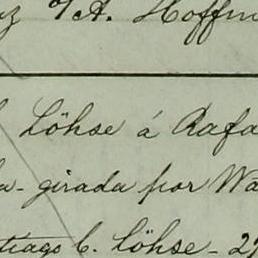 z o/A. Hoffm
Löhse á Rafa
da - girada por Wa
tiago C. Löhse - 29